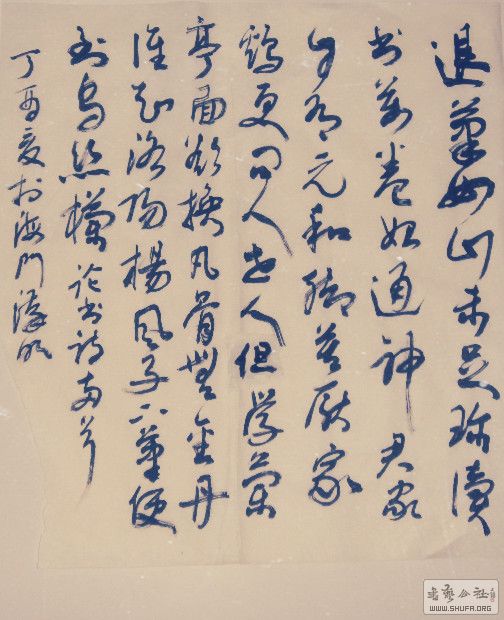 退筆如山未足珍讀
書萬卷始通神君家
自有元和脚莫厭家
鷄更問人世人但學蘭
亭面欲換凡骨無金丹
誰知洛陽楊風子下筆便
到烏絲欄論書詩兩首
丁酉夏於海門
書藝公社
WWW.SHUFA.ORG